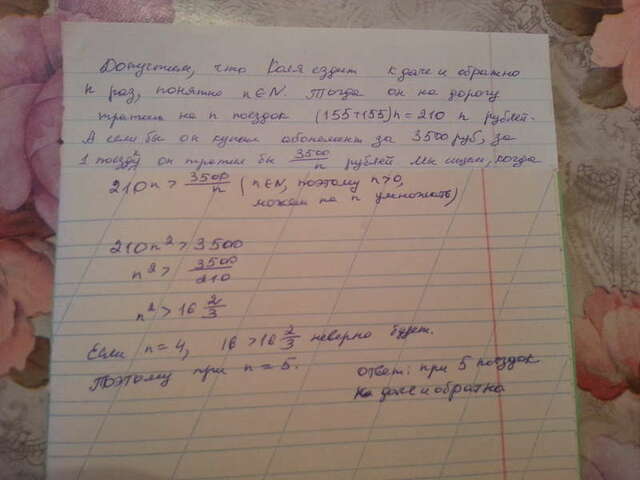 Допустим, что Коля ездит к даче и обратно
n раз, понятно n∈N. Тогда он на дорогу
тратит на n поездок (155+155)n=210 n рублей.
А если бы он купил абонемент за 3500 руб, за
1 поездку он тратил бы 3500/n рублей Мы ищем, когда
210n > 3500/n ( n∈N, поэтому n>0,
можем на n умножать)
210n² > 3500
n² > 3500/210
n² > 16 2/3
Если n=4, 16 > 16 2/3 неверно будет.
Поэтому при n = 5. Ответ: при 5 поездок
на даче и обратно